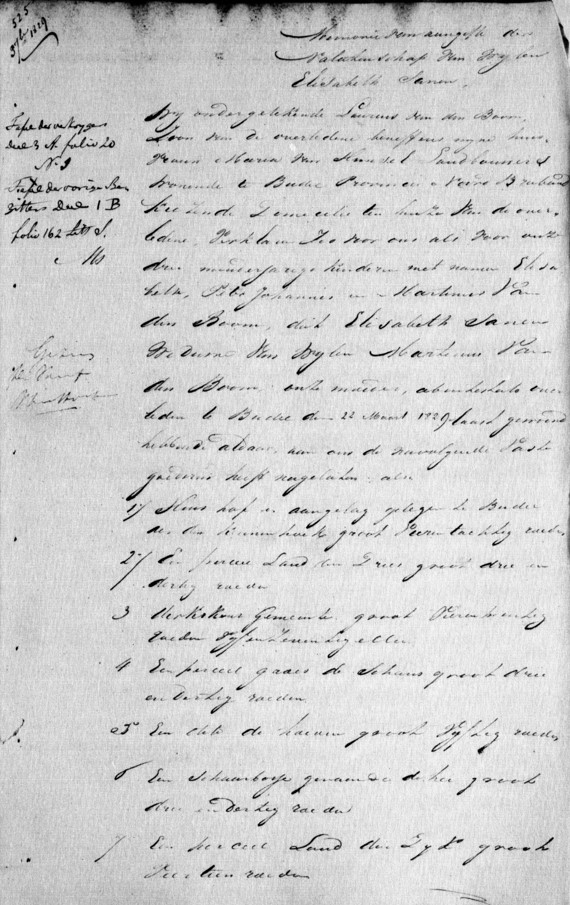 525
1829
Memorie van aangifte der
Nalatenschap van wylen
Elisabeth Sanen.
Tafel der verkrygers
deel 3 A folio 20
N 9
Tafel der vorige Be
zitters Deel 1 B
folio 162 Lett S.
Wy ondergetekende van den Boom,
Zoon van de overledene benevens myne huis
vrouw Maria van Landbouwers
wonende te Budel Provincie Noord Braband
kiezende Domicilie ten huize van de over
ledene, Verklaren Zoo voor ons als voor onze
drie minderjarige kinderen met namen Elisa
beth, Johannis en Martinus Van
den Boom, dat Elisabeth Sanen
Weduwe van wylen Martinus Van
den Boom onze moeder, over
leden te Budel den 22 Maart 1829 laast gewoond
hebbende aldaar, aan ons de navolgende Vaste
goederen heeft nagelaten als
1 Huis hof en aangelag gelegen te Budel
aan den groot Vierentachtig roeden
2 Een perceel Land den Dries groot drie en
dertig roeden
3 Gemeente, groot
roeden Vyf en Zeventig ellen
4 Een perceel de Schans groot drie
en Dertig roeden
5 Een de groot Vyftig roeden
6 Een genaamd de groot
drie en Dertig roeden
7 Een perceel Land den Dyk groot
Veertien roeden